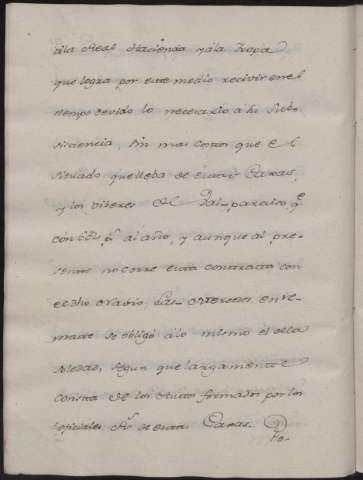 ala Real Hacienda y ala Tropa
que logra por este medio recivir en el
tiempo devido lo necesario a su Sub-
sistencia, sin mas costos que el
Situado que lleba de estas Caxas,
y los viveres de Valparaiso q.e
con p.s al año, y aunque al pre-
sente no corre esta contrata con
el dho en re-
mate se obligó a lo mismo el dela
segun que largamente
consta de los Autos formados por los
oficiales R.s de estas Caxas.